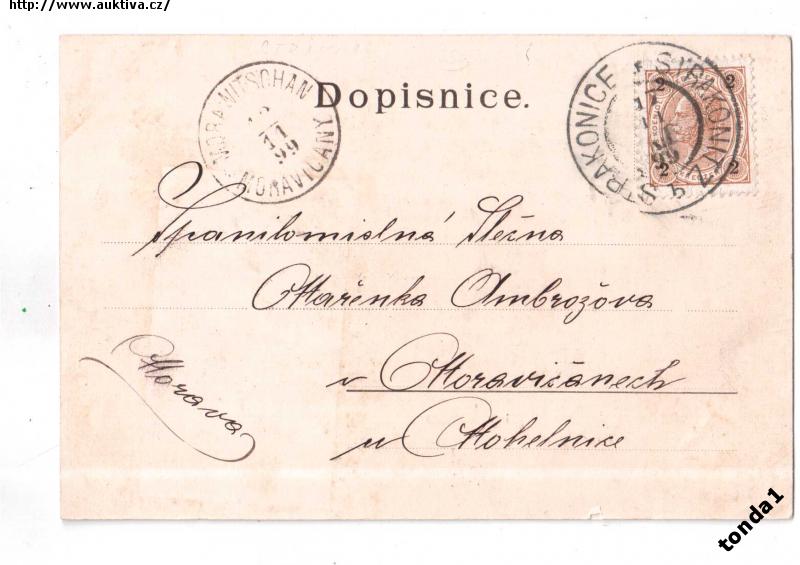 http://www.auktiva.cz/
Dopisnice.
MORA-MITSCHAN
11
99
MORAVIČANY
STRAKONICE
STRAKONITZ
2 2
2 2
Spanilomislná Slečna
Mařenka Ambrožova
v Moravičánech
u Mohelnice
Morava
tonda1